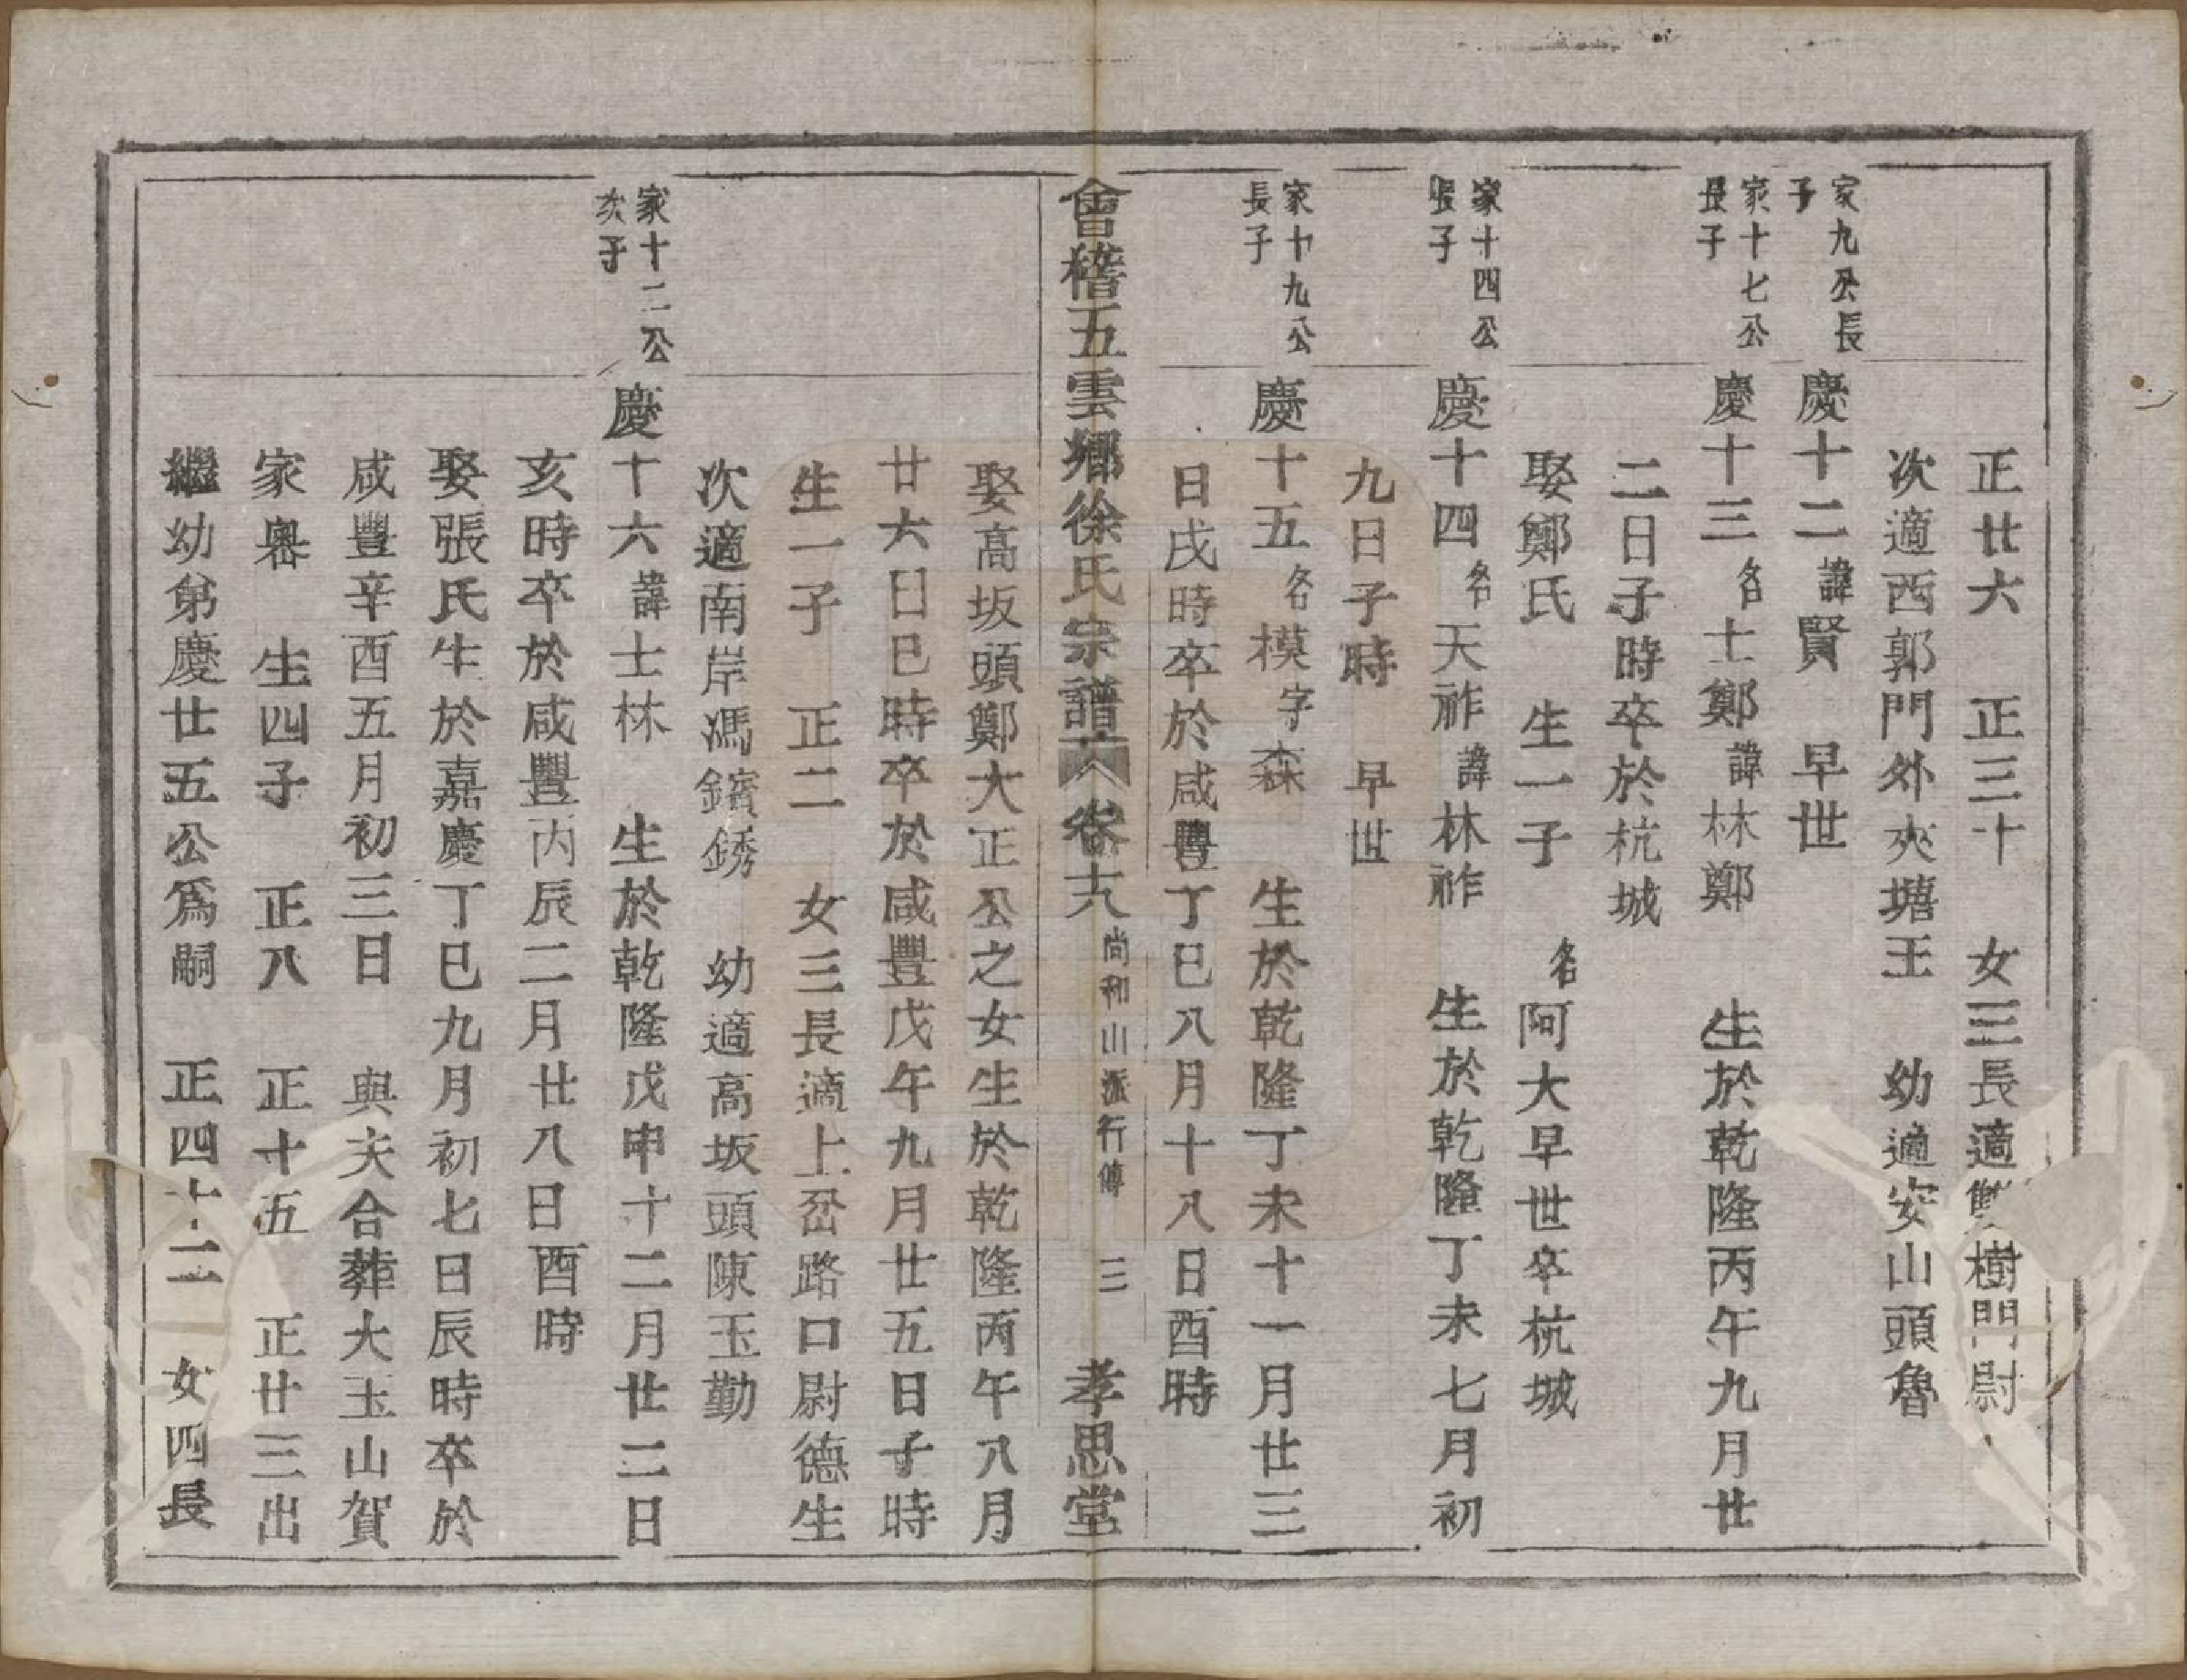 正廿六　正三十　女三長適雙樹門尉
次適西郭門外夾塘王　幼適安山頭魯
家九公長
子
慶十二諱賢　早世
家十七公
長子
慶十三名士鄭諱林鄭　生於乾隆丙午九月廿
二日子時卒於杭城
娶鄭氏　生一子　名阿大早世卒杭城
家十四公
長子
慶十四名天祚諱林祚　生於乾隆丁未七月初
九日子時　早世
家十九公
長子
慶十五名模字森　生於乾隆丁未十一月廿三
日戌時卒於咸豐丁巳八月十八日酉時
會稽五雲鄉徐氏宗譜　卷十八　尚和山派行傳　三　孝思堂
娶高坂頭鄭大正公之女生於乾隆丙午八月
廿六日巳時卒於咸豐戊午九月廿五日子時
生一子　正二　女三長適上岙路口尉德生
次適南岸馮鑌銹　幼適高坂頭陳玉勤
家十二公
次子
慶十六諱士林　生於乾隆戊申十二月廿二日
亥時卒於咸豐丙辰二月廿八日酉時
娶張氏生於嘉慶丁巳九月初七日辰時卒於
咸豐辛酉五月初三日　與夫合葬大玉山賀
家嶴　生四子　正八　正十五　正廿三出
繼幼弟慶廿五公爲嗣　正四十二　女四長